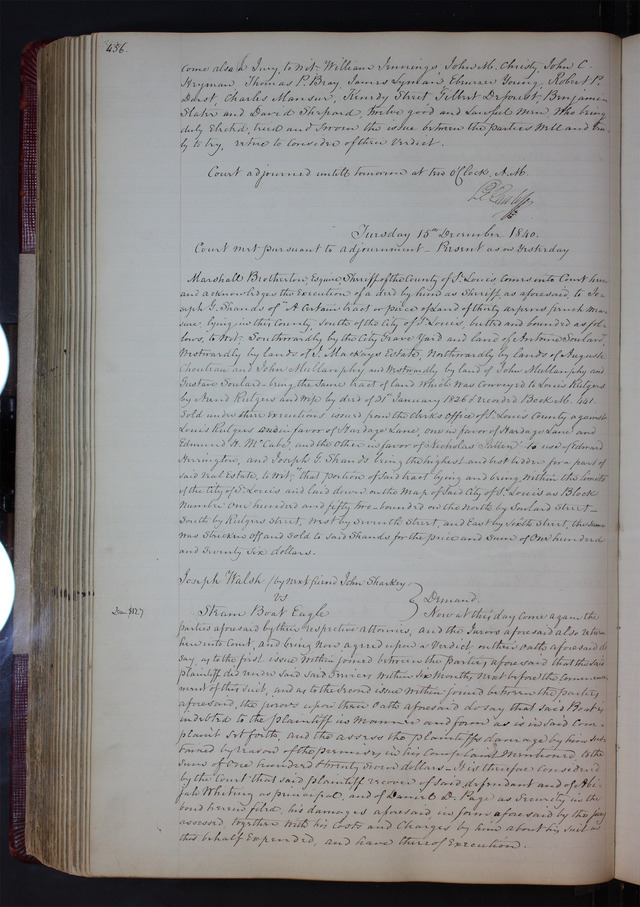 456.
come also a Jury, to wit: William Jennings, John M. Christy, John C.
Hryman, Thomas P. Bray, James Lyman, Ebenezer Young, Robert P.
Dorst, Charles Mansur, Street Gilbert Deforest, Benjamin
Slater and David Shepard, twelve good and Lawful men, who being
duly Elected, tried and Sworn the issue between the parties Well and tru-
ly to try, retire to consider of their Verdict.
Court adjourned untill tomorrow at ten OClock, A.M.
Tuesday 15th December 1840.
Court met pursuant to adjournment - Present as on Yesterday
Marshall Brotherton, Esquire, Sheriff of the County of St. Louis, comes into Court here
and acknowledges the Execution of a deed by him as Sheriff as aforesaid, to Jo-
seph G. Shands of "A Certain tract or piece of land of thirty arpens french Mea-
sure, lying in this County, South of the City of St. Louis, butted and bounded as fol-
lows, to Wit; Southwardly by the City Grave Yard and land of Antoine Soulard,
Westwardly by lands of J. Mackays Estate, Northwardly by lands of August
Chouteau and John Mullanphy and Westwardly by land of John Mullanphy and
Gustave Soulard - being the Same tract of land which was Conveyed to Louis Rutgers
by Arend Rutgers and Wife by deed of 31st January 1826 recorded Book M. 441.
Sold under three executions issued from the Clerks Office of St. Louis County against
Louis Rutgers one in favor of Hardage Lane, one in favor of Hardage Lane and
Edmund H. McCabe, and the other in favor of Nicholas to use of Edward
Herrington, and Joseph G. Shands being the highest and best bidder for a part of
said real Estate, to Wit; "that portion of Said tract lying and being within the limits
of the City of St. Louis and laid down on the Map of Said City of St. Louis as Block
Number One hundred and fifty two - bounded on the North by Soulard Street -
South by Rutgers Street, West by Seventh Street, and East by Sixth Street, the same
was Stricken off and Sold to said Shands for the price and Sum of One hundred
and Seventy Six dollars.
Joseph Walsh (by next friend John Sharkey)
vs } Demand.
Dam $127 Steam Boat Eagle Now at this day Come again the
parties aforesaid by their respective attornies, and the Jurors aforesaid also return
here into Court, and being now agreed upon a Verdict on their oaths aforesaid do
say, as to the first issue within joined between the parties aforesaid that the said
plaintiff did render said said Services within Six Months next before the commence-
ment of this suit, and as to the Second issue within joined between the parties
aforesaid, the jurors upon their Oaths aforesaid do say that said Boat is
indebted to the plaintiff in Manner and form as is in said Com-
plaint Set forth, and the assess the plaintiffs damage by him Sus-
tained by reason of the permises in his Complaint Mentioned to the
Sum of One hundred & twenty Seven dollars - It is therefore considered
by the Court that said plaintiff recover of Said defendant and of Abi-
jah Whiting as principal, and of Daniel D. Page as Security in the
bond herein filed, his damages aforesaid in form aforesaid by the jury
assessed together with his Costs and Charges by him about his Suit in
this behalf Expended, and have thereof Execution.